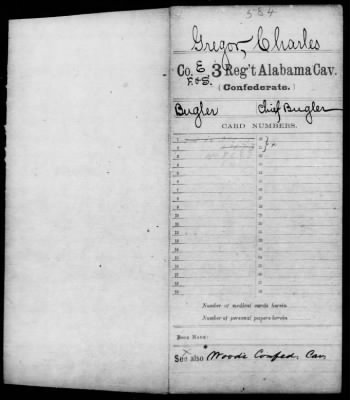 584
Gregor, Charles
Co. E 3 Reg't Alabama Cav.
F. & S.
(Confederate.)
Bugler Chief Bugler
CARD NUMBERS.
Number of medical cards herein
Number of personal papers herein
BOOK MARK:
See also Woods Confed. Cav.